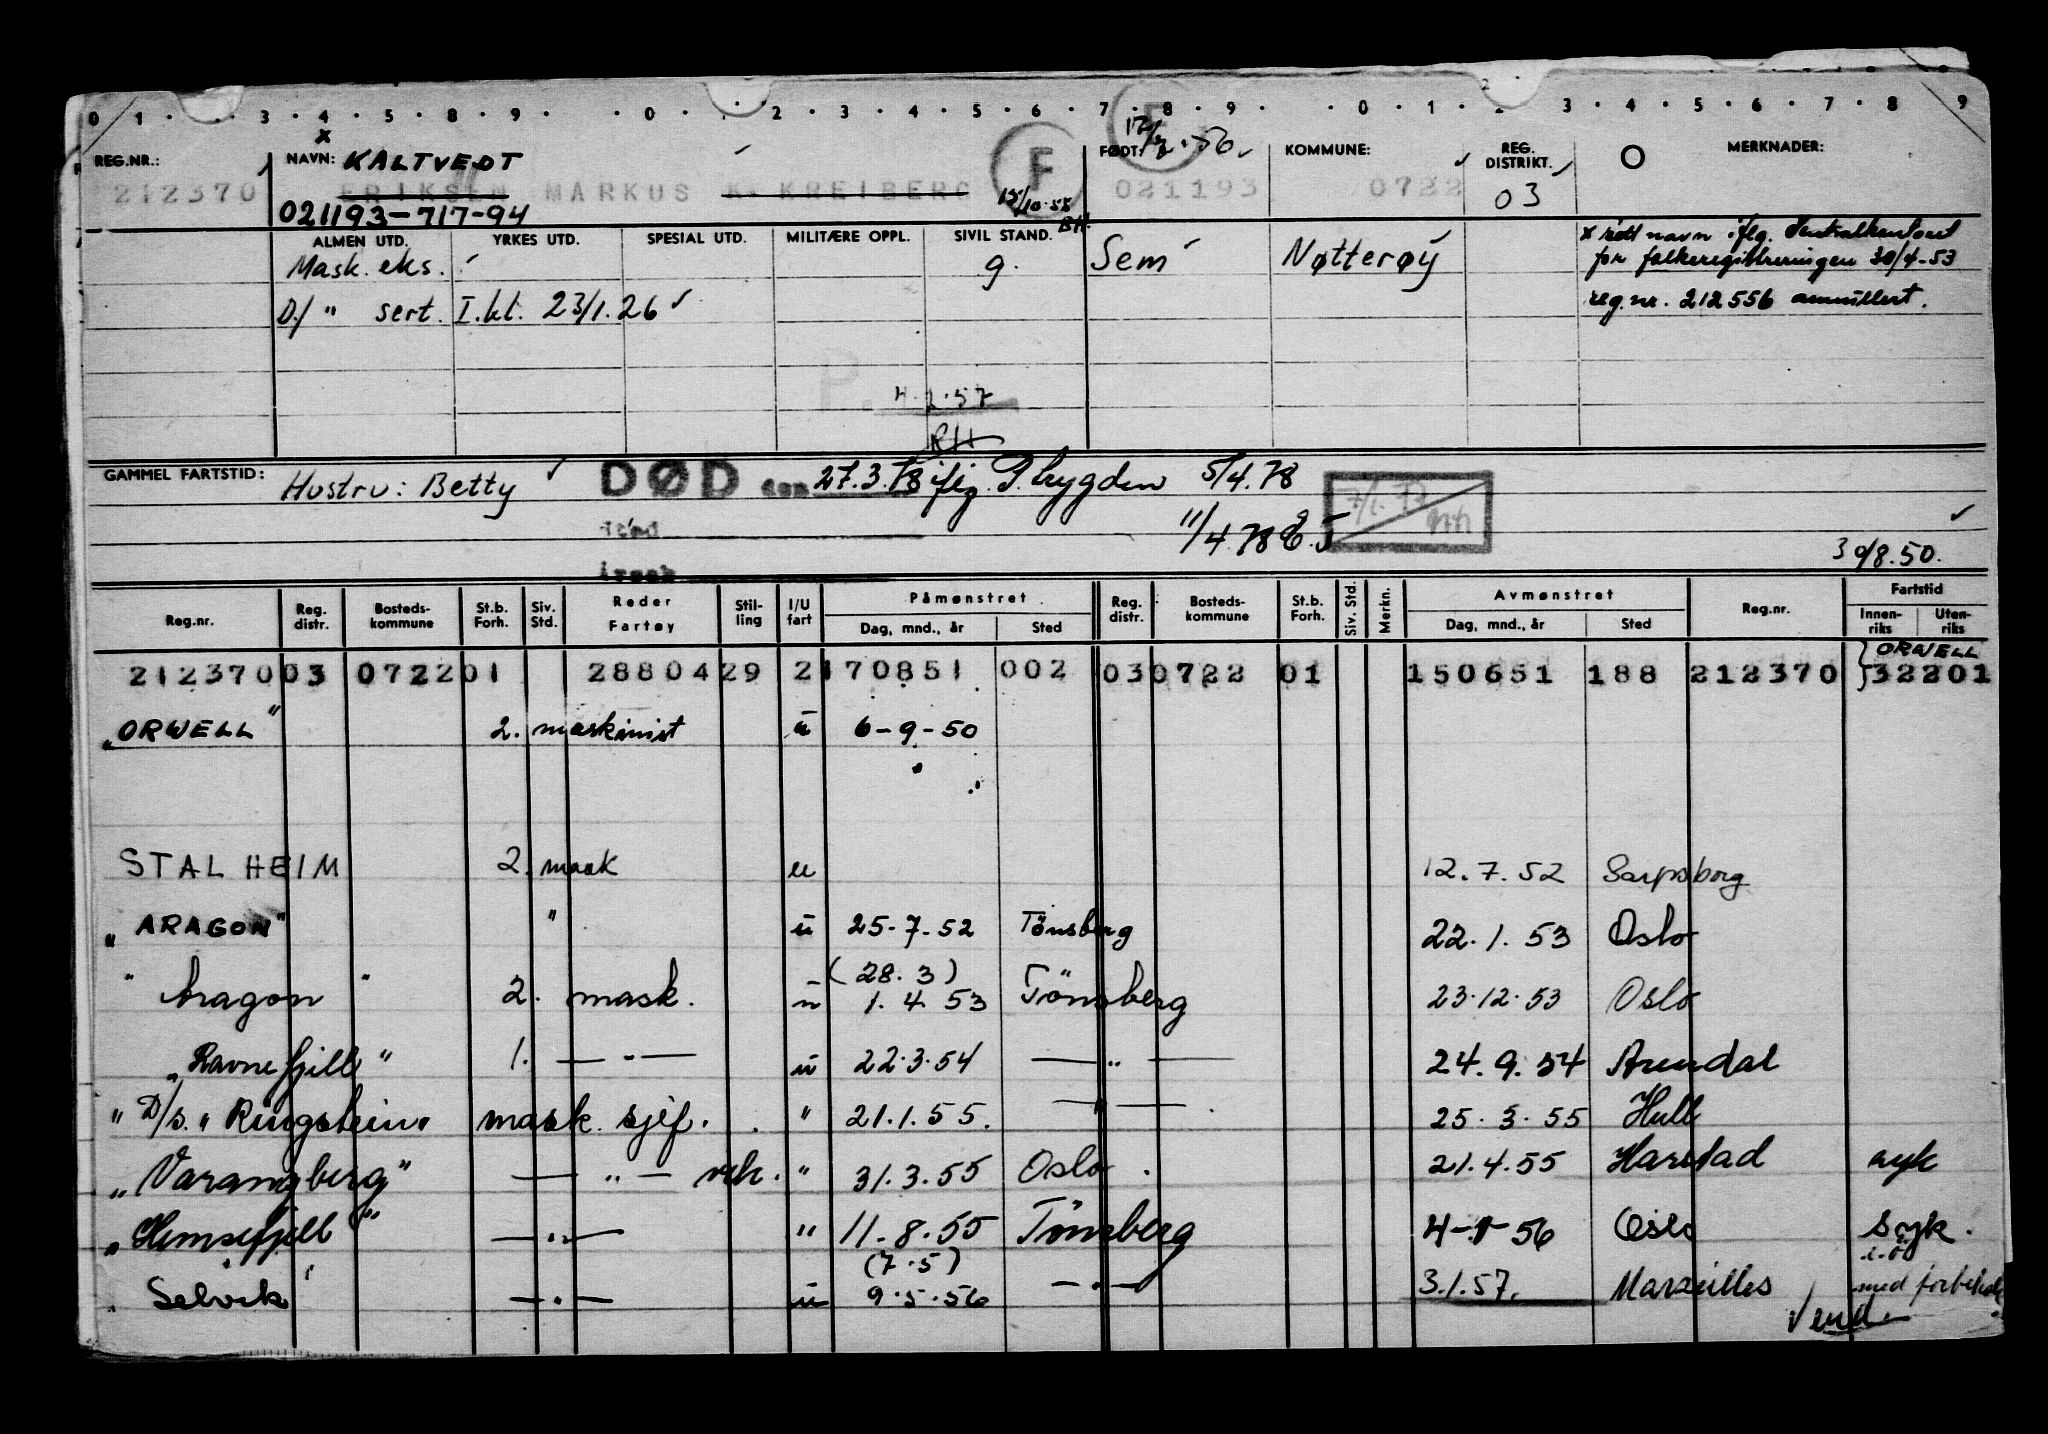 0 1 · · 3 · 4 · 5 · 8 · 9 · · 0 · · 2 · 3 · 4 · 5 · 6 · 7 · 8 · 9 · · 0 · 1 · 2 · 3 · 4 · 5 · 6 · 7 · 8 · 9
REG.NR.: NAVN: KALTVEDT F FØDT: KOMMUNE: REG. DISTRIKT. MERKNADER:
212370 ERIKSEN MARKUS K. KREIBERG 15/10-55 021193 0722 03
021193-717-94 BH.
ALMEN UTD. YRKES UTD. SPESIAL UTD. MILITÆRE OPPL. SIVIL STAND.
Mask. eks. g. Sem Nøtterøy
x rett navn iflg. Sentralkontoret
for folkeregistreringen 30/4-53
D/ " sert. I.kl. 23/1.26
reg.nr. 212556 annullert.
P. 4.2.57
RH
GAMMEL FARTSTID: Hustru: Betty DØD den 27.3.78 iflg. P. trygden 5/4.78
11/4.78 E.J 7/1.77
30/8.50.
Reg.nr. Reg. distr. Bosteds-kommune St.b. Forh. Siv. Std. Reder Fartøy Stil-ling I/U fart Påmønstret Dag, mnd., år Sted Reg. distr. Bosteds-kommune St.b. Forh. Siv. Std. Merkn. Avmønstret Dag, mnd., år Sted Reg.nr. Fartstid Innen-riks Uten-riks
ORWELL
212370 03 0722 01 28804 29 2 170851 002 03 0722 01 150651 188 212370 32201
"ORWELL" 2. maskinist u 6-9-50
STALHEIM 2. mask u 12.7.52 Sarpsborg
"ARAGON" " u 25.7.52 Tönsberg 22.1.53 Oslo
(28.3)
" Aragon " 2. mask. u 1.4.53 Tönsberg 23.12.53 Oslo
"Ravnefjell" 1. — " — u 22.3.54 — " — 24.9.54 Arendal
" D/s. "Ringstein" mask. sjef. " 21.1.55. — " — 25.3.55 Hull
"Varangberg" — " — vik. " 31.3.55 Oslo 21.4.55 Harstad syk
"Hemsefjell" — " — " 11.8.55 Tönsberg 4-1-56 Oslo syk.
(7.5)
"Selvik" — " — u 9.5.56 — " — 3.1.57. Marseilles med
Vend.